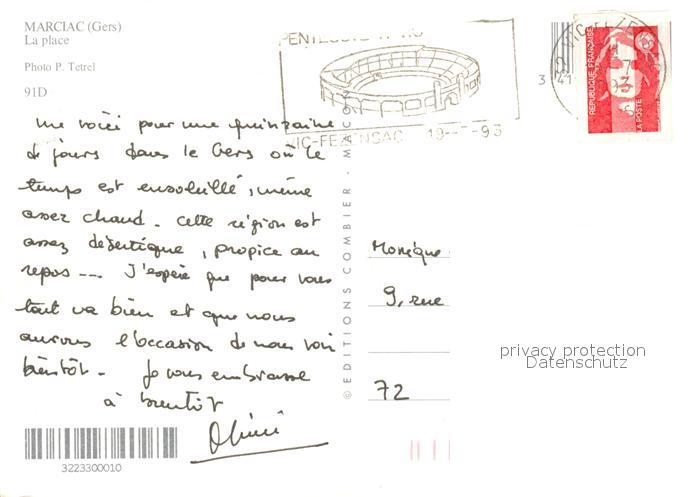 MARCIAC (Gers)
La place
Photo P. Tetrel
91D
Me voici pour une quinzaine
de jours dans le Gers où le
temps est ensoleillé, même
assez chaud. Cette région est
assez désertique, propice au
repos --- J'espère que pour vous
tout va bien et que nous
aurons l'occasion de nous voir
bientôt. Je vous embrasse
à bientôt
3223300010
© EDITIONS COMBIER - MACON
PENTECOTE
VIC-FEZENSAC 19
93
VIC-FEZENSAC
3 41
REPUBLIQUE FRANÇAISE
LA POSTE
Monique
9, rue
72
privacy protection
Datenschutz